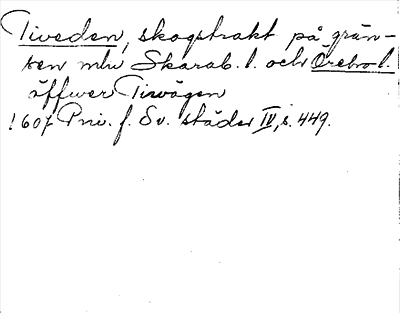 Tiveden, skogstrakt på grän-
sen mln Skarab. l. och Örebro l.
äffwer Tiwägen
1607 Priv. f. Sv. städer IV, s. 449.